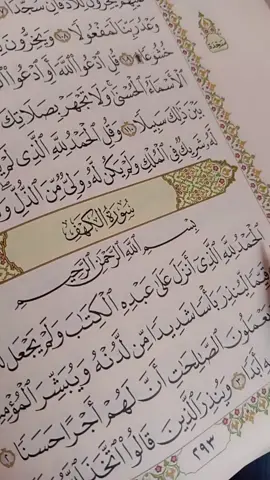 يَخِرُّونَ لِلْأَذْقَانِ سُجَّدًا
سَجْدَة
وَعْدُ رَبِّنَا لَمَفْعُولًا ۝١٠٨ وَيَخِرُّونَ
خُشُوعًا ۩ ۝١٠٩ قُلِ ٱدْعُوا۟ ٱللَّهَ أَوِ ٱدْعُوا۟
ٱلْأَسْمَآءُ ٱلْحُسْنَىٰ وَلَا تَجْهَرْ بِصَلَاتِكَ
بَيْنَ ذَٰلِكَ سَبِيلًا ۝١١٠ وَقُلِ ٱلْحَمْدُ لِلَّهِ ٱلَّذِى لَمْ
لَّهُۥ شَرِيكٌ فِى ٱلْمُلْكِ وَلَمْ يَكُن لَّهُۥ وَلِىٌّ مِّنَ ٱلذُّلِّ
سُورَةُ الكَهْفِ
بِسْمِ ٱللَّهِ ٱلرَّحْمَٰنِ ٱلرَّحِيمِ
ٱلْحَمْدُ لِلَّهِ ٱلَّذِىٓ أَنزَلَ عَلَىٰ عَبْدِهِ ٱلْكِتَٰبَ وَلَمْ يَجْعَل
قَيِّمًا لِّيُنذِرَ بَأْسًا شَدِيدًا مِّن لَّدُنْهُ وَيُبَشِّرَ
يَعْمَلُونَ ٱلصَّٰلِحَٰتِ أَنَّ لَهُمْ أَجْرًا حَسَنًا ۝٢
أَبَدًا ۝٣ وَيُنذِرَ ٱلَّذِينَ قَالُوا۟ ٱتَّخَذَ
٢٩٣